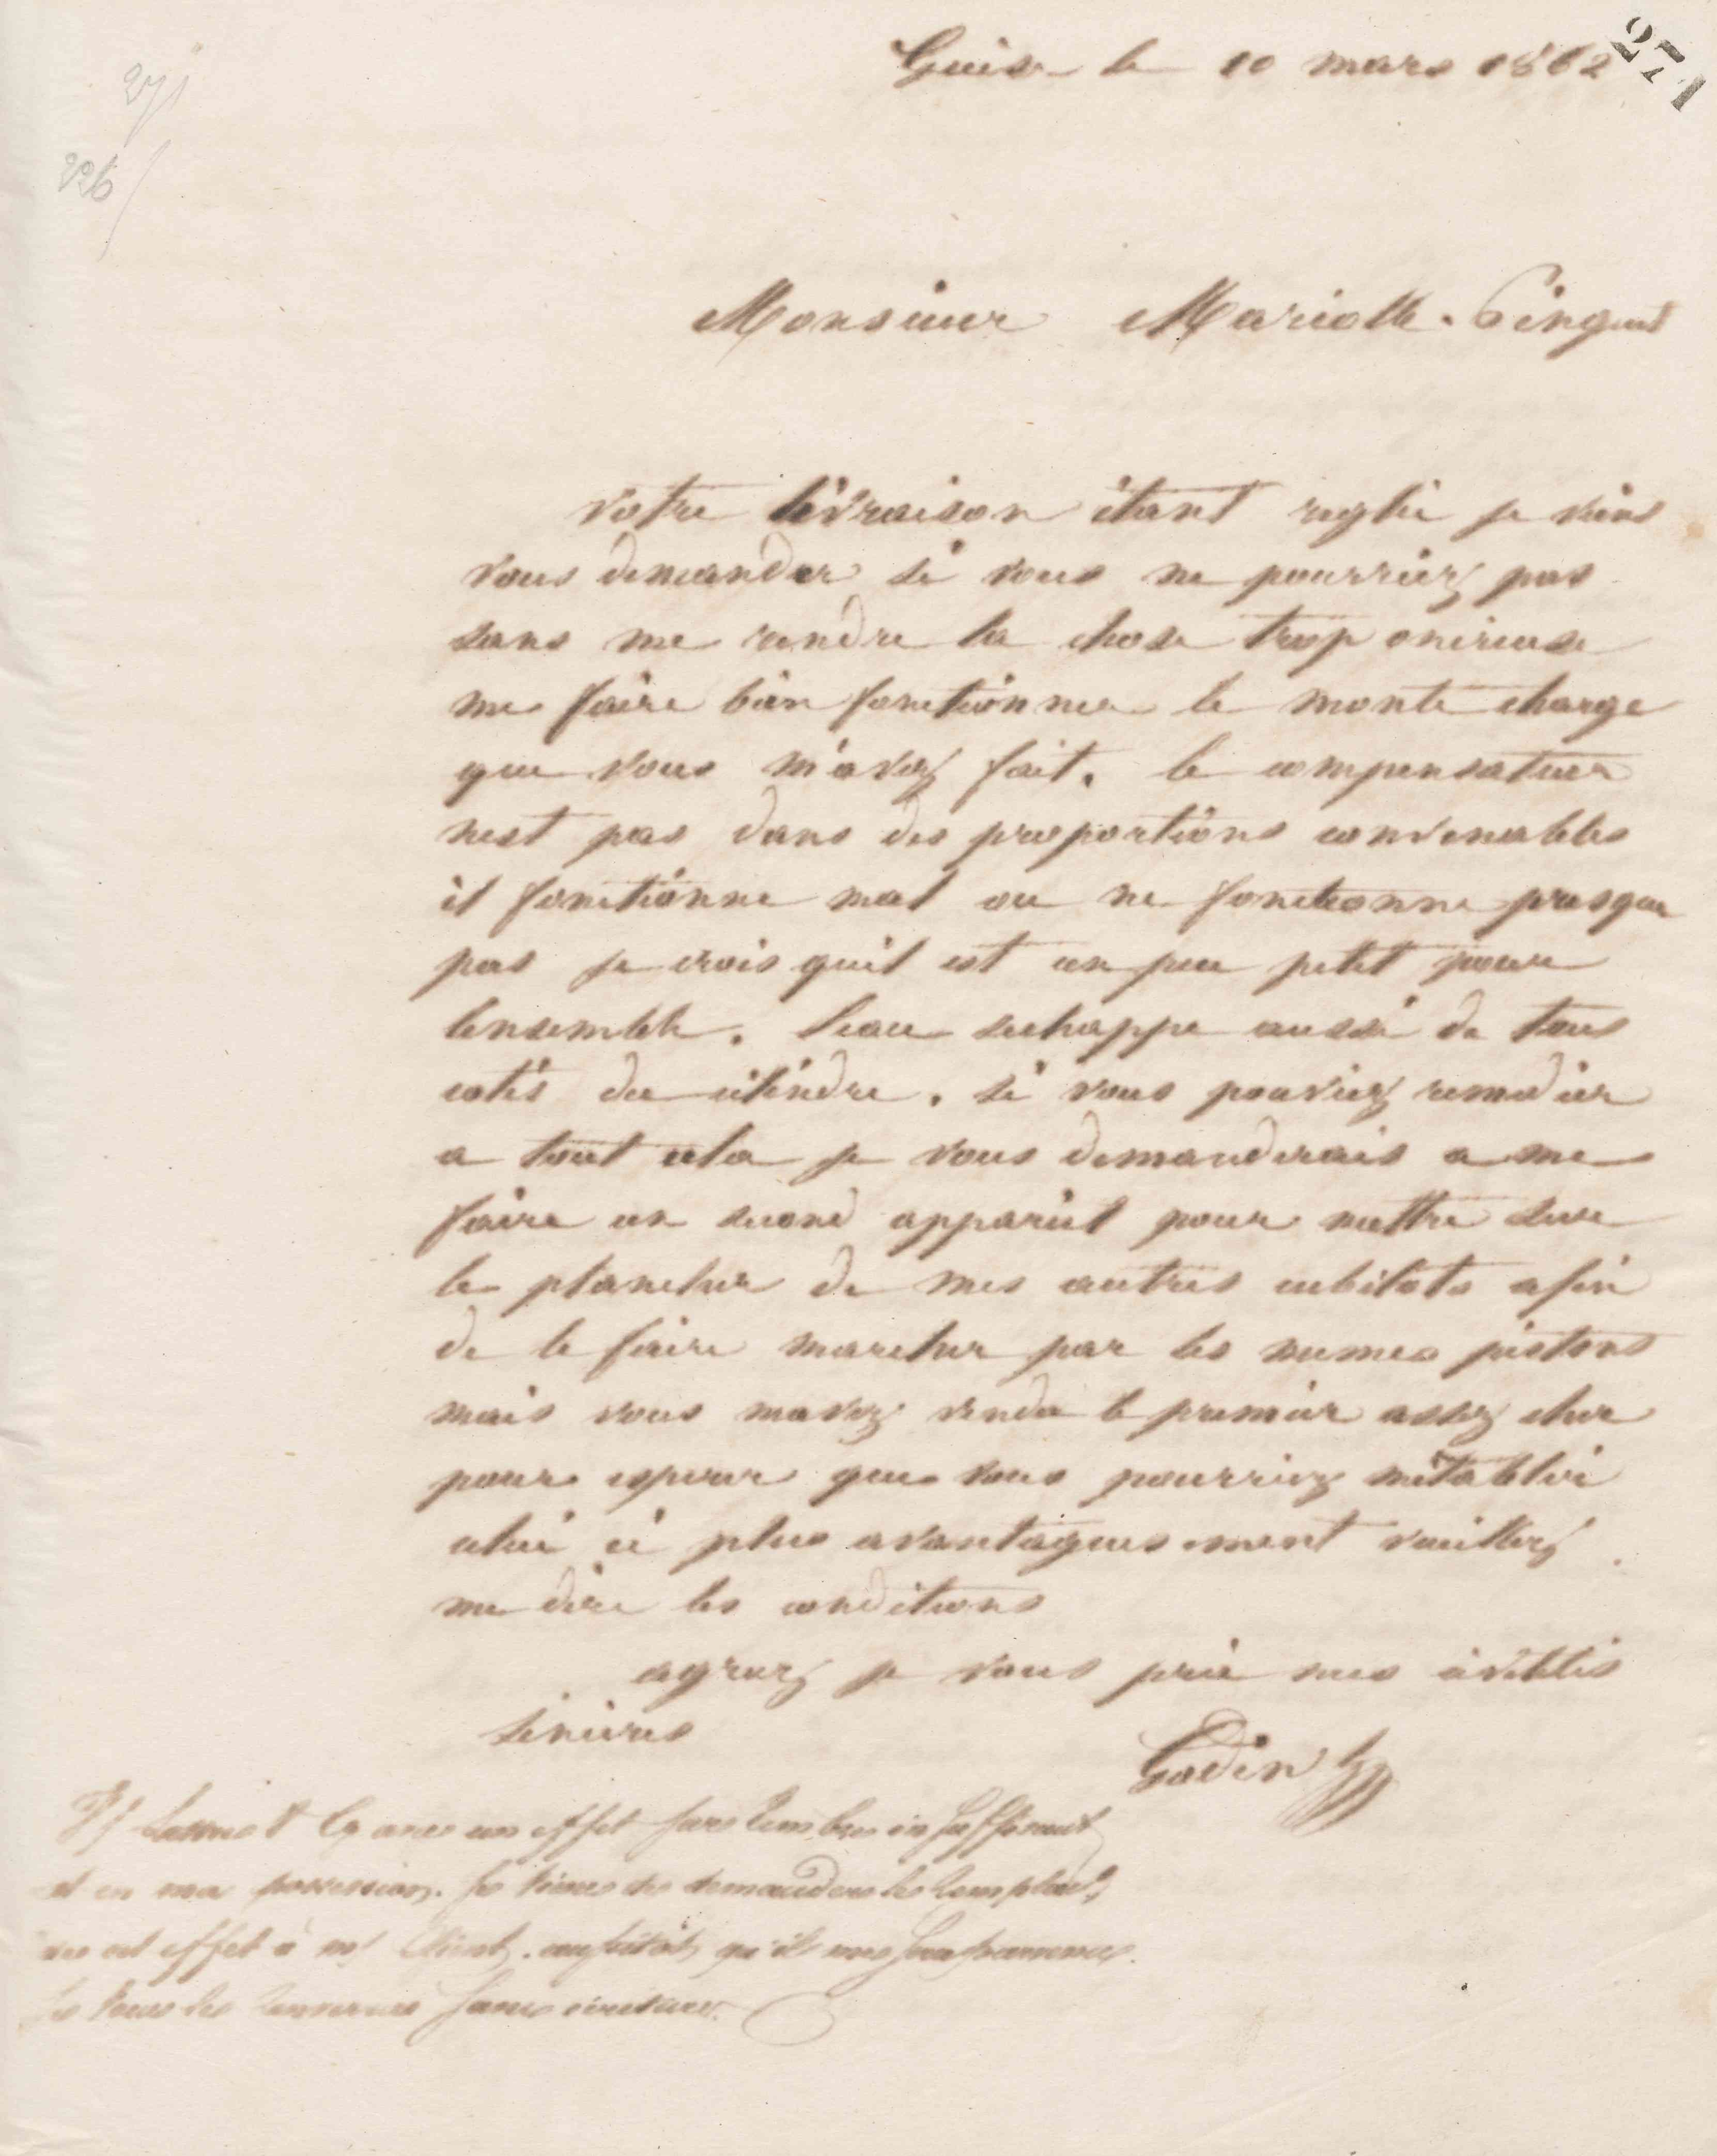 271
Guise le 10 mars 1862
271
226
Monsieur Mariolle-Pinguet
votre livraison étant reglée je viens
vous demander si vous ne pourriez pas
sans me rendre la chose trop onereuse
me faire bien fonctionner le monte charge
que vous m'avez fait. le compensateur
nest pas dans des proportions convenables
il fonctionne mal ou ne fonctionne presque
pas je crois quil est un peu petit pour
lensemble. leau sechappe aussi de tous
cotés du cilindre. si vous pouviez remedier
a tout cela je vous demanderais a me
faire un second appareil pour mettre sur
le plancher de mes autres cubilots afin
de le faire marcher par les memes pistons
mais vous mavez vendu le premier assez cher
pour esperer que vous pourriez métablir
celui ci plus avantageusement veuillez
me dire les conditions
agreez je vous prie mes civilités
sincères
Godin
un effet sur insuffisant
est en ma possession. Je viens de demander le
cet effet à aussitôt qu'il me sera parvenu
Je vous le renverrai